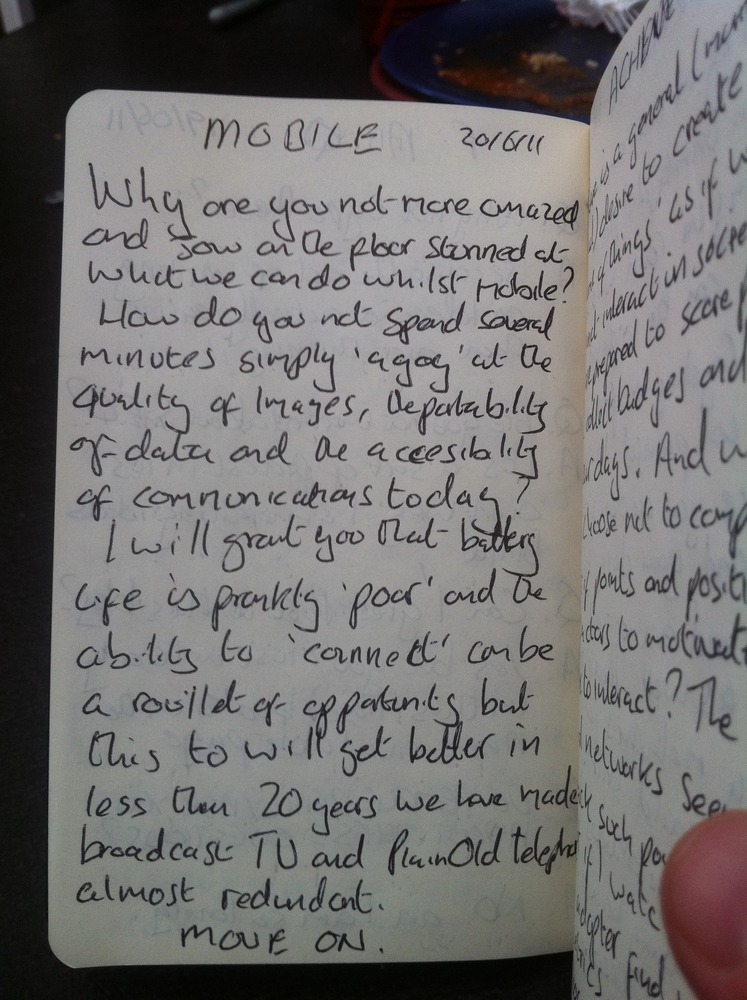 MOBILE 20/6/11
Why are you not more amazed
and jaw on the floor stunned at
what we can do whilst mobile?
How do you not spend several
minutes simply 'agog' at the
quality of Images, the portability
of data and the accesibility
of communications today?
I will grant you that battery
life is frankly 'poor' and the
ability to 'connect' can be
a roullet of opportunity but
this to will get better in
less than 20 years we have made
broadcast TV and Plain Old teleph
almost redundant.
MOVE ON.
ACHIEVE
is a general
desire to create
of things' as if
interact in
prepared to score
badges and
days. And
choose not to
points and
to motivate
to interact? The
networks See
such
find